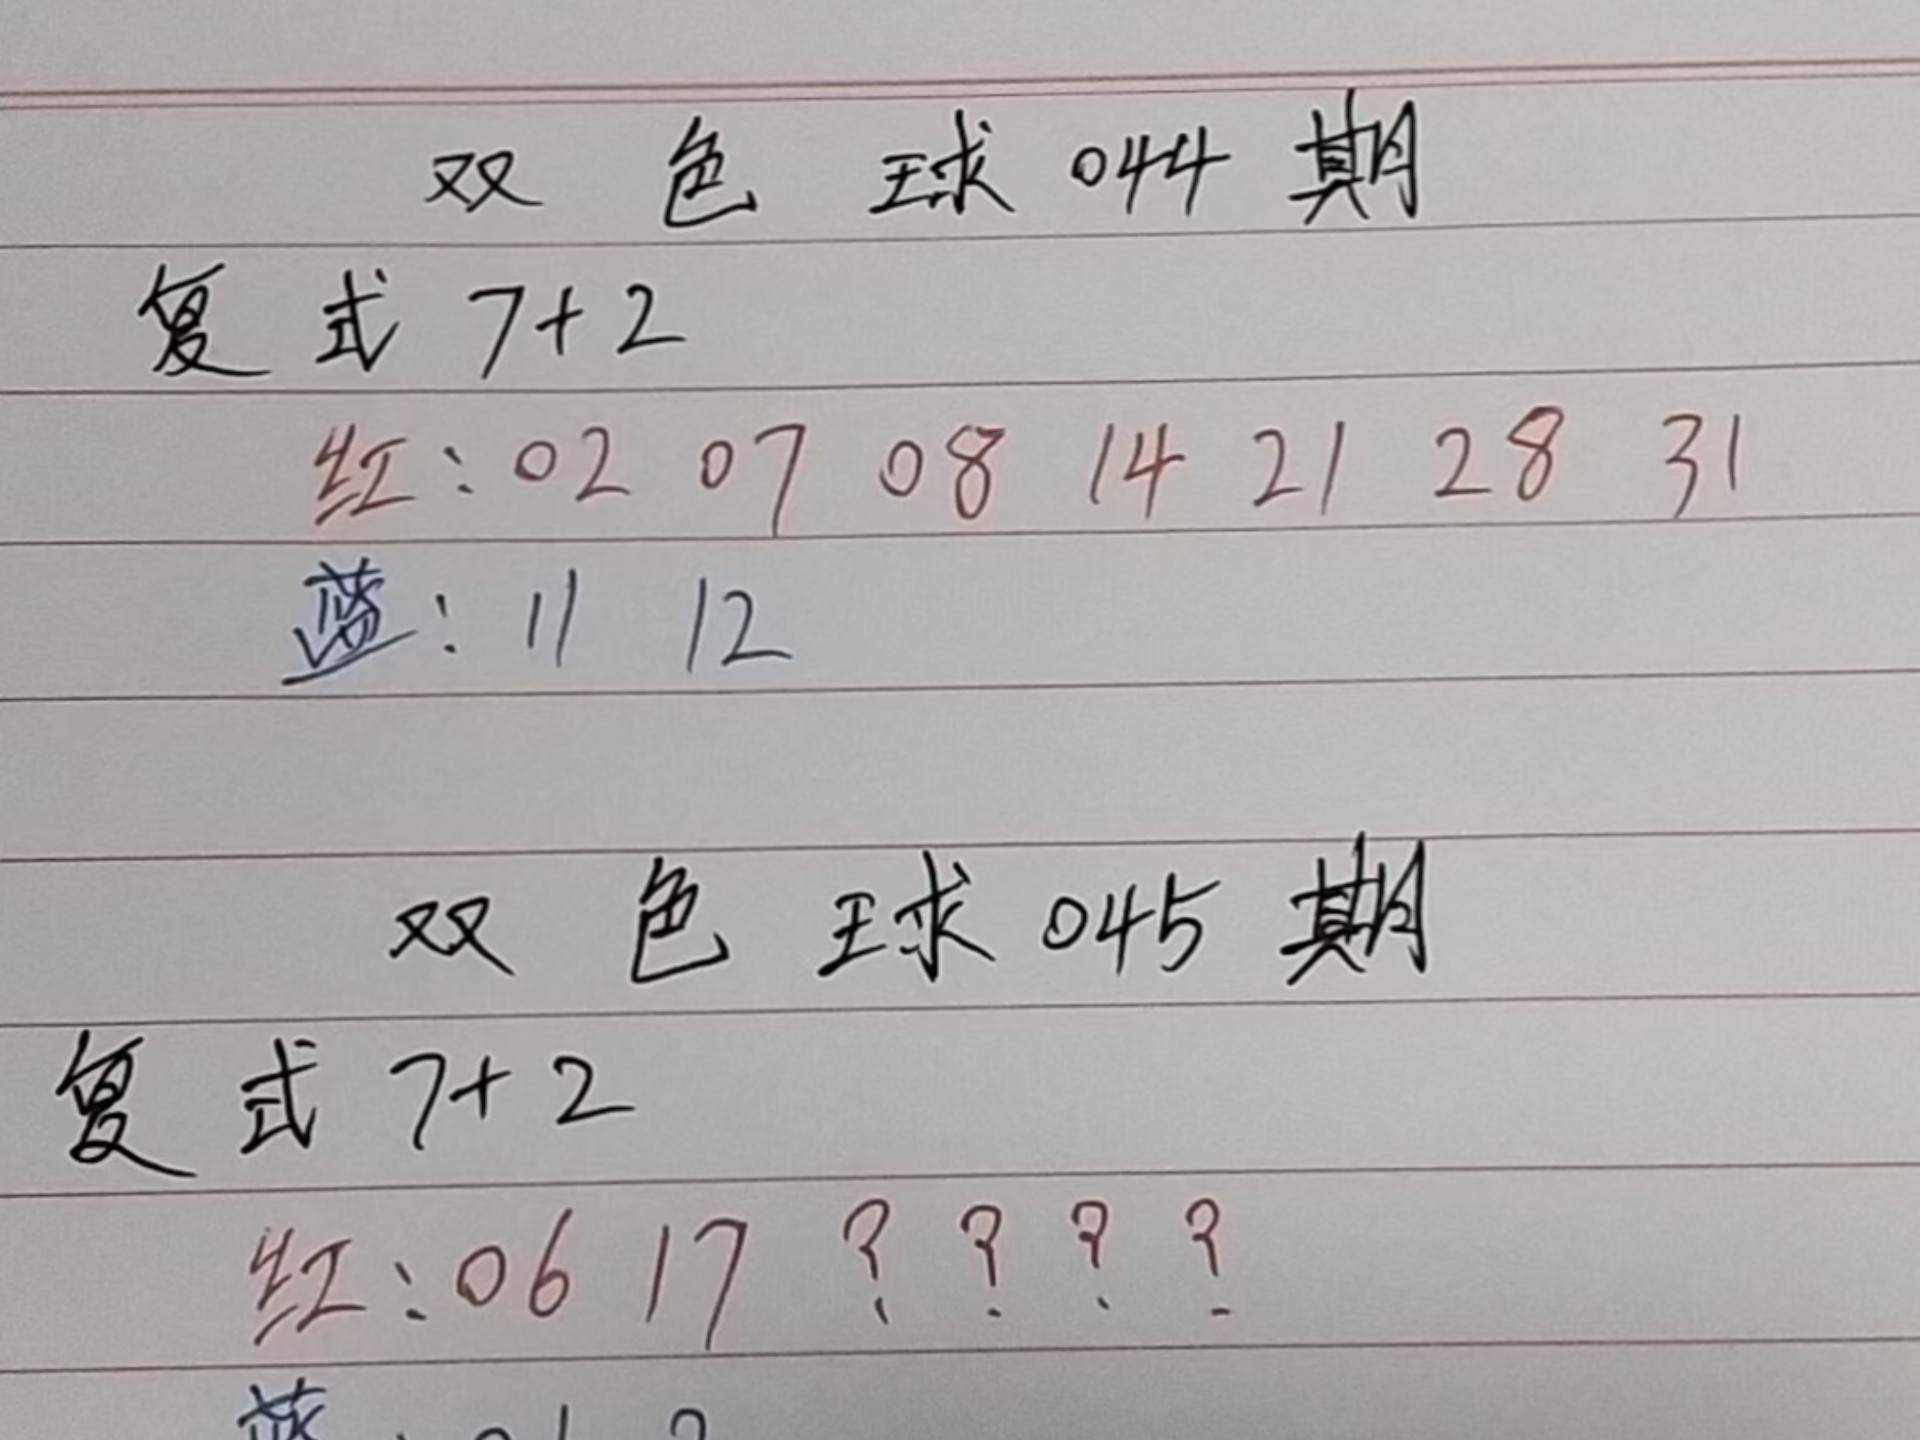 双色球044期
复式 7+2
红:02 07 08 14 21 28 31
蓝:11 12
双色球045期
复式 7+2
红:06 17 ? ? ? ?
蓝:01 ?